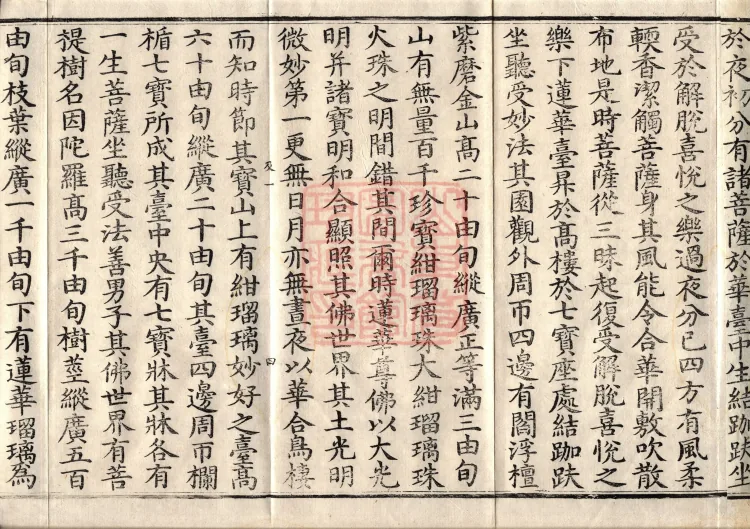 於夜初分有諸菩薩於華臺中生結跏趺坐
受於解脫喜悅之樂過夜分已四方有風柔
輭香潔觸菩薩身其風能令合華開敷吹散
布地是時菩薩從三昧起復受解脫喜悅之
樂下蓮華臺昇於高樓於七寶座處結跏趺
坐聽受妙法其園觀外周帀四邊有閻浮檀
紫磨金山高二十由旬縱廣正等滿三由旬
山有無量百千珍寶紺瑠璃珠大紺瑠璃珠
火珠之明間錯其間爾時蓮華尊佛以大光
明并諸寶明和合顯照其佛世界其土光明
微妙第一更無日月亦無晝夜以華合鳥棲
而知時節其寶山上有紺瑠璃妙好之臺高
六十由旬縱廣二十由旬其臺四邊周帀欄
楯七寶所成其臺中央有七寶牀其牀各有
一生菩薩坐聽受法善男子其佛世界有菩
提樹名因陀羅高三千由旬樹莖縱廣五百
由旬枝葉縱廣一千由旬下有蓮華瑠璃為